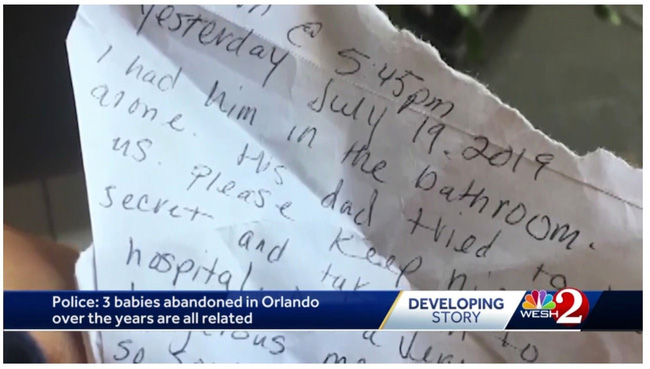 @ 5:45pm
yesterday July 19. 2019
I had him in the bathroom.
alone. His dad tried to
us. please keep
secret and
hospital to
a
so
Police: 3 babies abandoned in Orlando
over the years are all related
DEVELOPING
STORY
WESH 2